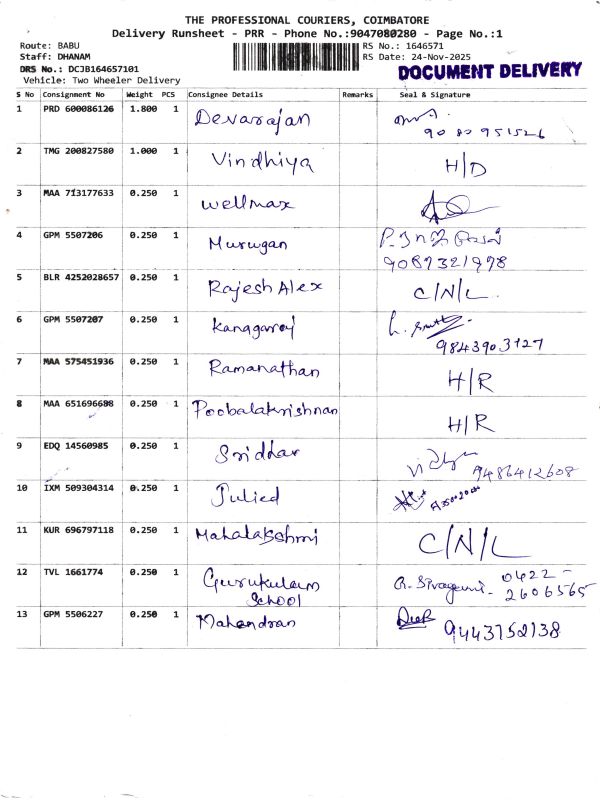 THE PROFESSIONAL COURIERS, COIMBATORE
Delivery Runsheet - PRR - Phone No.:9047080280 - Page No.:1
Route: BABU RS No.: 1646571
Staff: DHANAM RS Date: 24-Nov-2025
DRS No.: DCJB164657101 DOCUMENT DELIVERY
Vehicle: Two Wheeler Delivery
S No Consignment No Weight PCS Consignee Details Remarks Seal & Signature
1 PRD 600086126 1.800 1 Devarajan
2 TMG 200827580 1.000 1 Vindhiya H/D
3 MAA 713177633 0.250 1 Wellmax
4 GPM 5507206 0.250 1 Murugan
9087321978
5 BLR 4252028657 0.250 1 Rajesh Alex C/N/L
6 GPM 5507207 0.250 1 Kanagaraj
9843903127
7 MAA 575451936 0.250 1 Ramanathan H/R
8 MAA 651696688 0.250 1 Poobalakrishnan H/R
9 EDQ 14560985 0.250 1 Sriddar
9486412608
10 IXM 509304314 0.250 1 Julied
11 KUR 696797118 0.250 1 Mahalakshmi C/N/L
12 TVL 1661774 0.250 1 Gurukulam School 0422-
2606565
13 GPM 5506227 0.250 1 Mahendran 9443752138